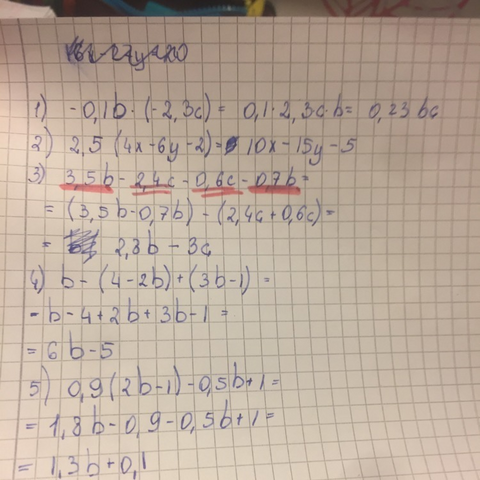 1) -0,1b·(-2,3c)= 0,1·2,3c·b= 0,23bc
2) 2,5(4x-6y-2)= 10x-15y-5
3) 3,5b-2,4c-0,6c-0,7b=
=(3,5b-0,7b)-(2,4c+0,6c)=
= 2,8b-3c
4) b-(4-2b)+(3b-1)=
-b-4+2b+3b-1=
=6b-5
5) 0,9(2b-1)-0,5b+1=
=1,8b-0,9-0,5b+1=
=1,3b+0,1